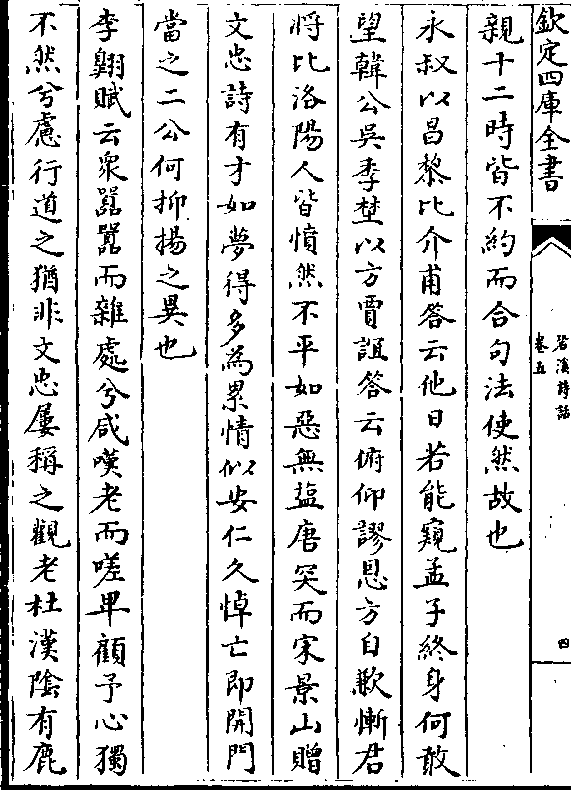 欽定四庫全書
䂬溪詩話
卷五
四
親十二時皆不約而合句法使然故也
永叔以昌黎比介甫答云他日若能窺孟子終身何敢
望韓公吳季埜以方賈誼答云俯仰謬恩方自歉慚君
將比洛陽人皆憤然不平如惡無盬唐突而宋景山贈
文忠詩有才如夢得多為累情似安仁久悼亡即開門
當之二公何抑揚之異也
李翺賦云衆囂囂而雜處兮咸嘆老而嗟卑顧予心獨
不然兮慮行道之猶非文忠屢稱之觀老杜漢陰有鹿